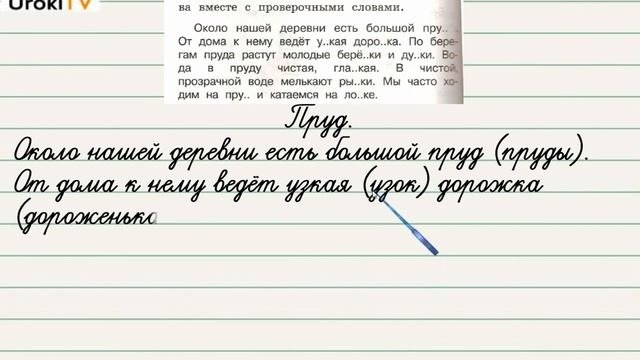 UrokiTV
ва вместе с проверочными словами.
Около нашей деревни есть большой пру.. .
От дома к нему ведёт у..кая доро..ка. По бере-
гам пруда растут молодые берё..ки и ду..ки. Во-
да в пруду чистая, гла..кая. В чистой,
прозрачной воде мелькают ры..ки. Мы часто хо-
дим на пру.. и катаемся на ло..ке.
Пруд.
Около нашей деревни есть большой пруд (пруды).
От дома к нему ведёт узкая (узок) дорожка
(дороженька